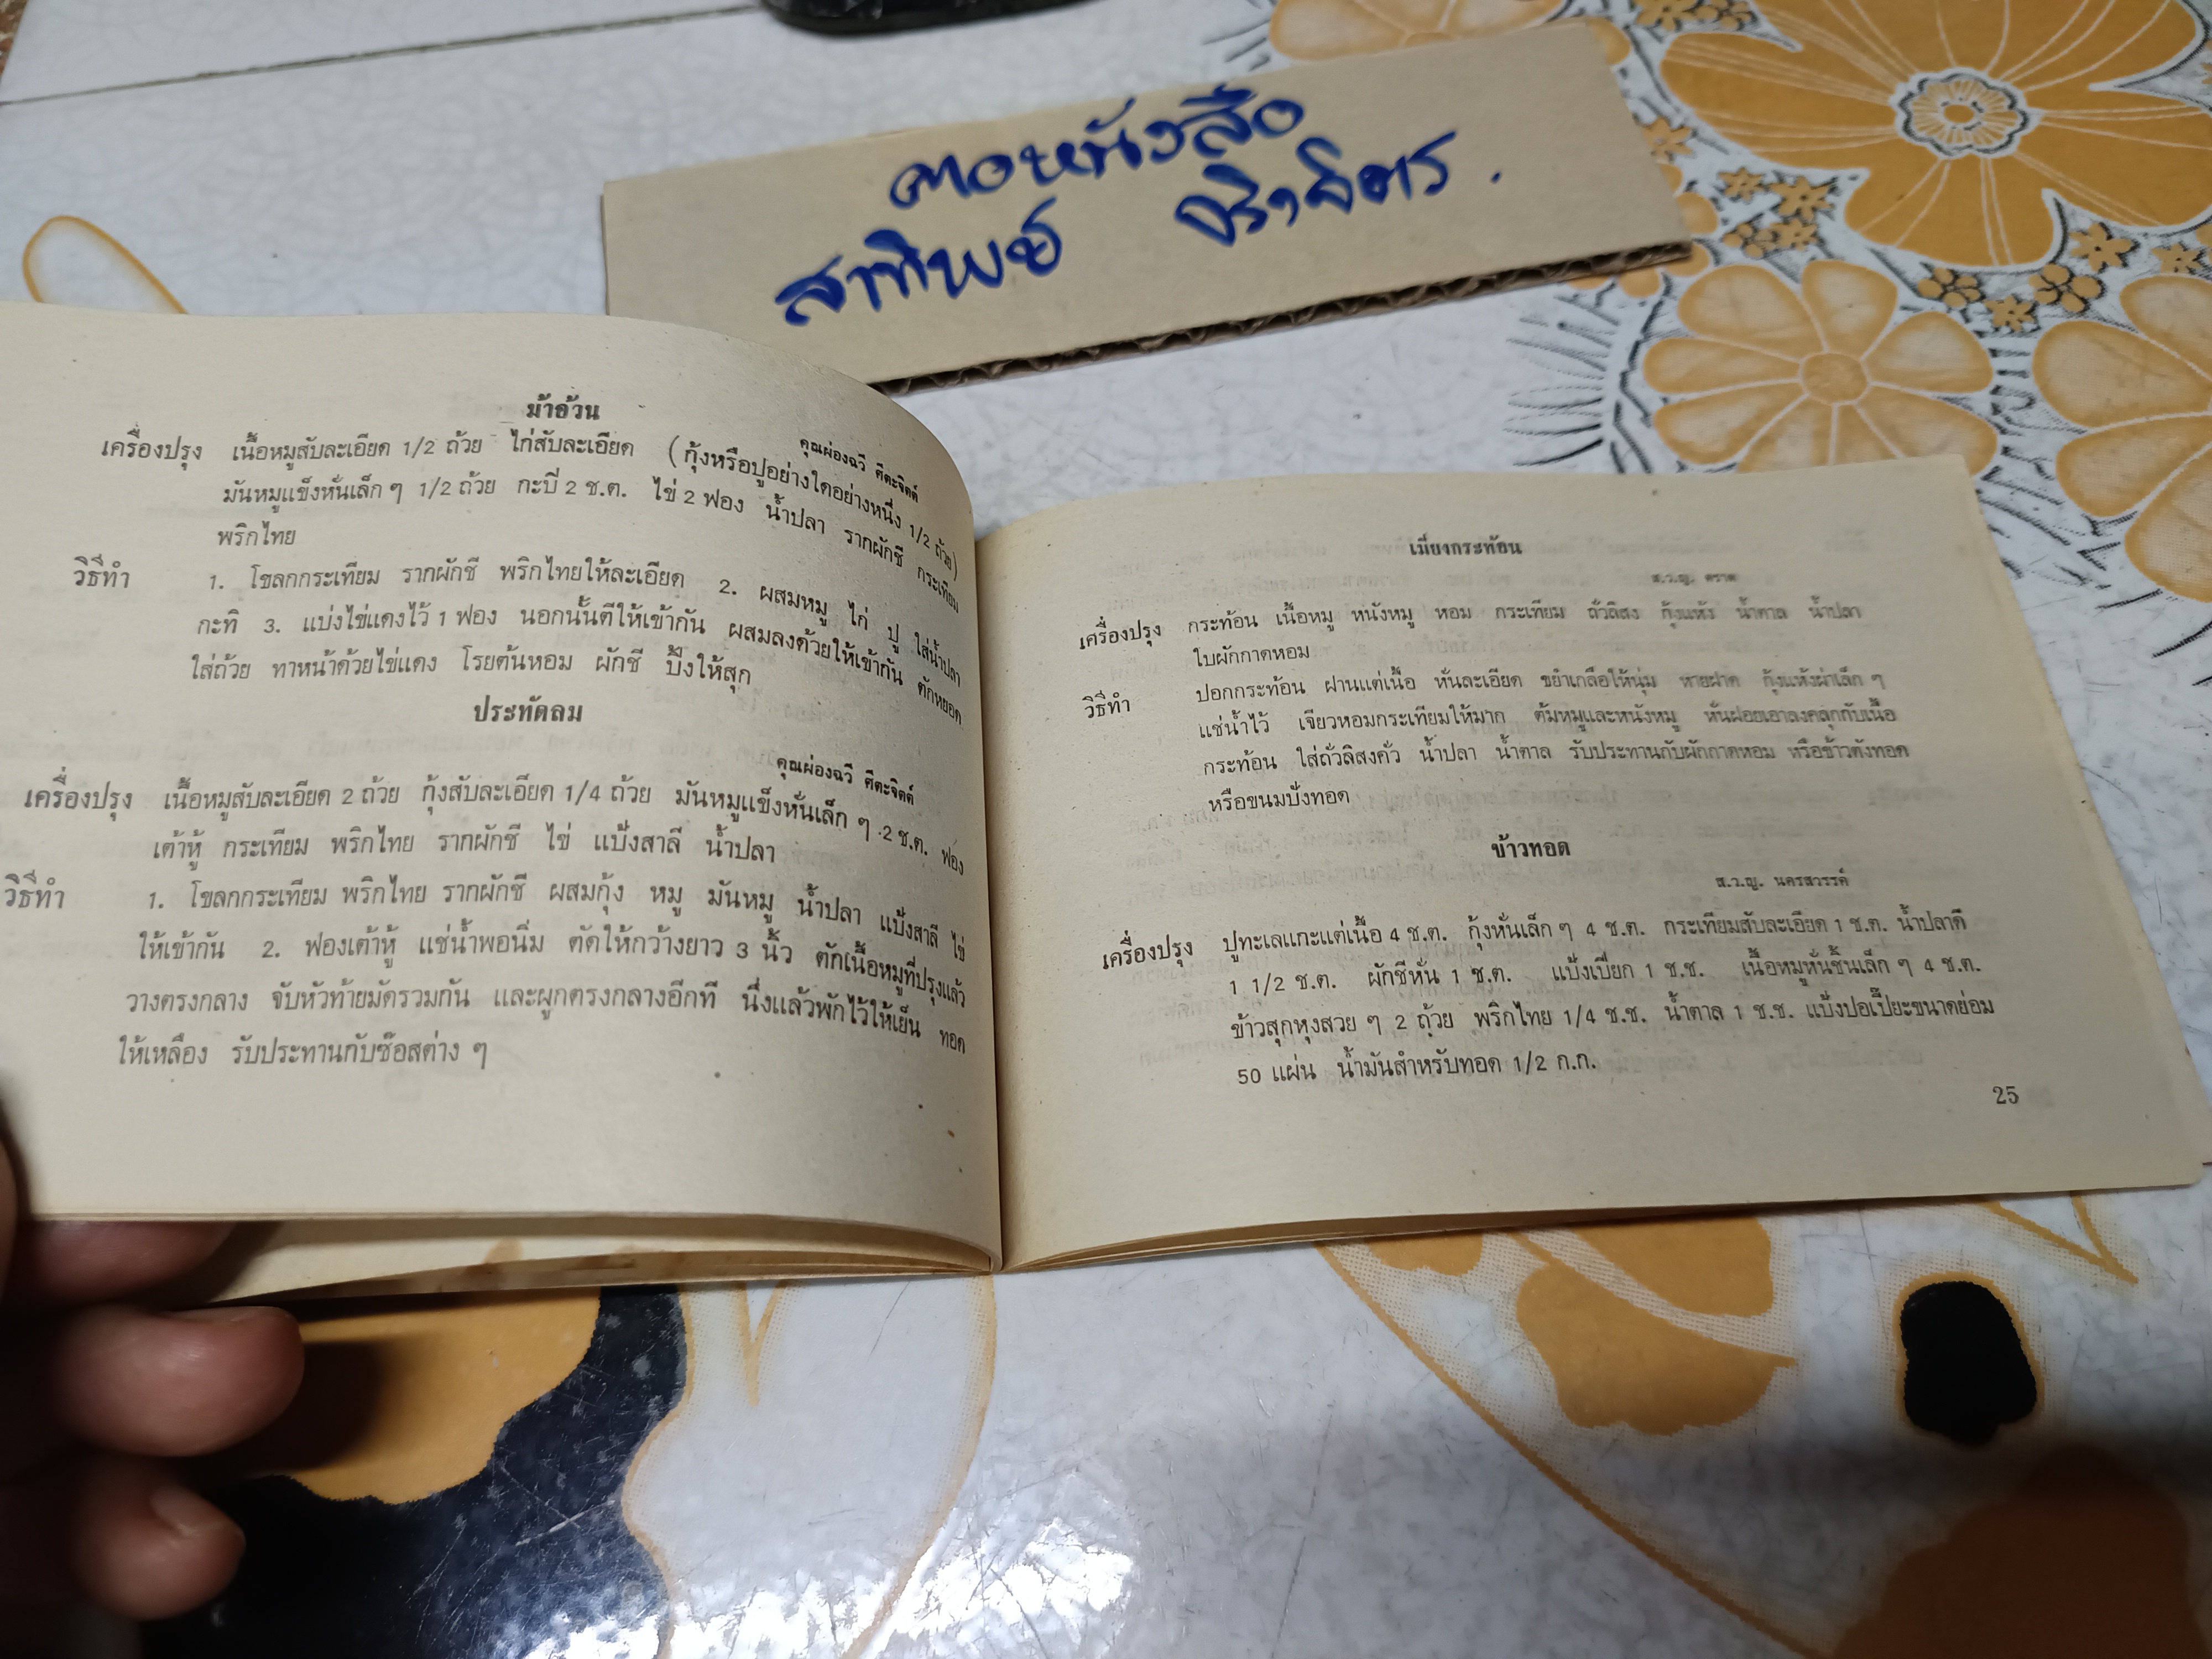 ฅอหนังสือ
สาทิพย์ จิราจิตร.
ม้าอ้วน
คุณผ่องฉวี ศีตะจิตต์
เครื่องปรุง เนื้อหมูสับละเอียด 1/2 ถ้วย ไก่สับละเอียด (กุ้งหรือปูอย่างใดอย่างหนึ่ง 1/2 ถ้วย)
มันหมูแข็งหั่นเล็ก ๆ 1/2 ถ้วย กะบี่ 2 ช.ต. ไข่ 2 ฟอง น้ำปลา รากผักชี กระเทียม
พริกไทย
วิธีทำ 1. โขลกกระเทียม รากผักชี พริกไทยให้ละเอียด 2. ผสมหมู ไก่ ปู ใส่น้ำปลา
กะทิ 3. แบ่งไข่แดงไว้ 1 ฟอง นอกนั้นตีให้เข้ากัน ผสมลงด้วยให้เข้ากัน ตักหยอด
ใส่ถ้วย ทาหน้าด้วยไข่แดง โรยต้นหอม ผักชี ปิ้งให้สุก
ประทัดลม
คุณผ่องฉวี ศีตะจิตต์
เครื่องปรุง เนื้อหมูสับละเอียด 2 ถ้วย กุ้งสับละเอียด 1/4 ถ้วย มันหมูแข็งหั่นเล็ก ๆ 2 ช.ต. ฟอง
เต้าหู้ กระเทียม พริกไทย รากผักชี ไข่ แป้งสาลี น้ำปลา
วิธีทำ 1. โขลกกระเทียม พริกไทย รากผักชี ผสมกุ้ง หมู มันหมู น้ำปลา แป้งสาลี ไข่
ให้เข้ากัน 2. ฟองเต้าหู้ แช่น้ำพอนิ่ม ตัดให้กว้างยาว 3 นิ้ว ตักเนื้อหมูที่ปรุงแล้ว
วางตรงกลาง จับหัวท้ายมัดรวมกัน และผูกตรงกลางอีกที นึ่งแล้วพักไว้ให้เย็น ทอด
ให้เหลือง รับประทานกับซ๊อสต่าง ๆ
เมี่ยงกระท้อน
ส.ว.ญ. ตราด
เครื่องปรุง กระท้อน เนื้อหมู หนังหมู หอม กระเทียม ถั่วลิสง กุ้งแห้ง น้ำตาล น้ำปลา
ใบผักกาดหอม
วิธีทำ ปอกกระท้อน ฝานแต่เนื้อ หั่นละเอียด ขยำเกลือให้นุ่ม หายฝาด กุ้งแห้งผ่าเล็ก ๆ
แช่น้ำไว้ เจียวหอมกระเทียมให้มาก ต้มหมูและหนังหมู หั่นฝอยเอาลงคลุกกับเนื้อ
กระท้อน ใส่ถั่วลิสงคั่ว น้ำปลา น้ำตาล รับประทานกับผักกาดหอม หรือข้าวตังทอด
หรือขนมปังทอด
ข้าวทอด
ส.ว.ญ. นครสวรรค์
เครื่องปรุง ปูทะเลแกะแต่เนื้อ 4 ช.ต. กุ้งหั่นเล็ก ๆ 4 ช.ต. กระเทียมสับละเอียด 1 ช.ต. น้ำปลาดี
1 1/2 ช.ต. ผักชีหั่น 1 ช.ต. แป้งเปียก 1 ช.ช. เนื้อหมูหั่นชิ้นเล็ก ๆ 4 ช.ต.
ข้าวสุกหุงสวย ๆ 2 ถ้วย พริกไทย 1/4 ช.ช. น้ำตาล 1 ช.ช. แป้งปอเปี๊ยะขนาดย่อม
50 แผ่น น้ำมันสำหรับทอด 1/2 ก.ก.
25